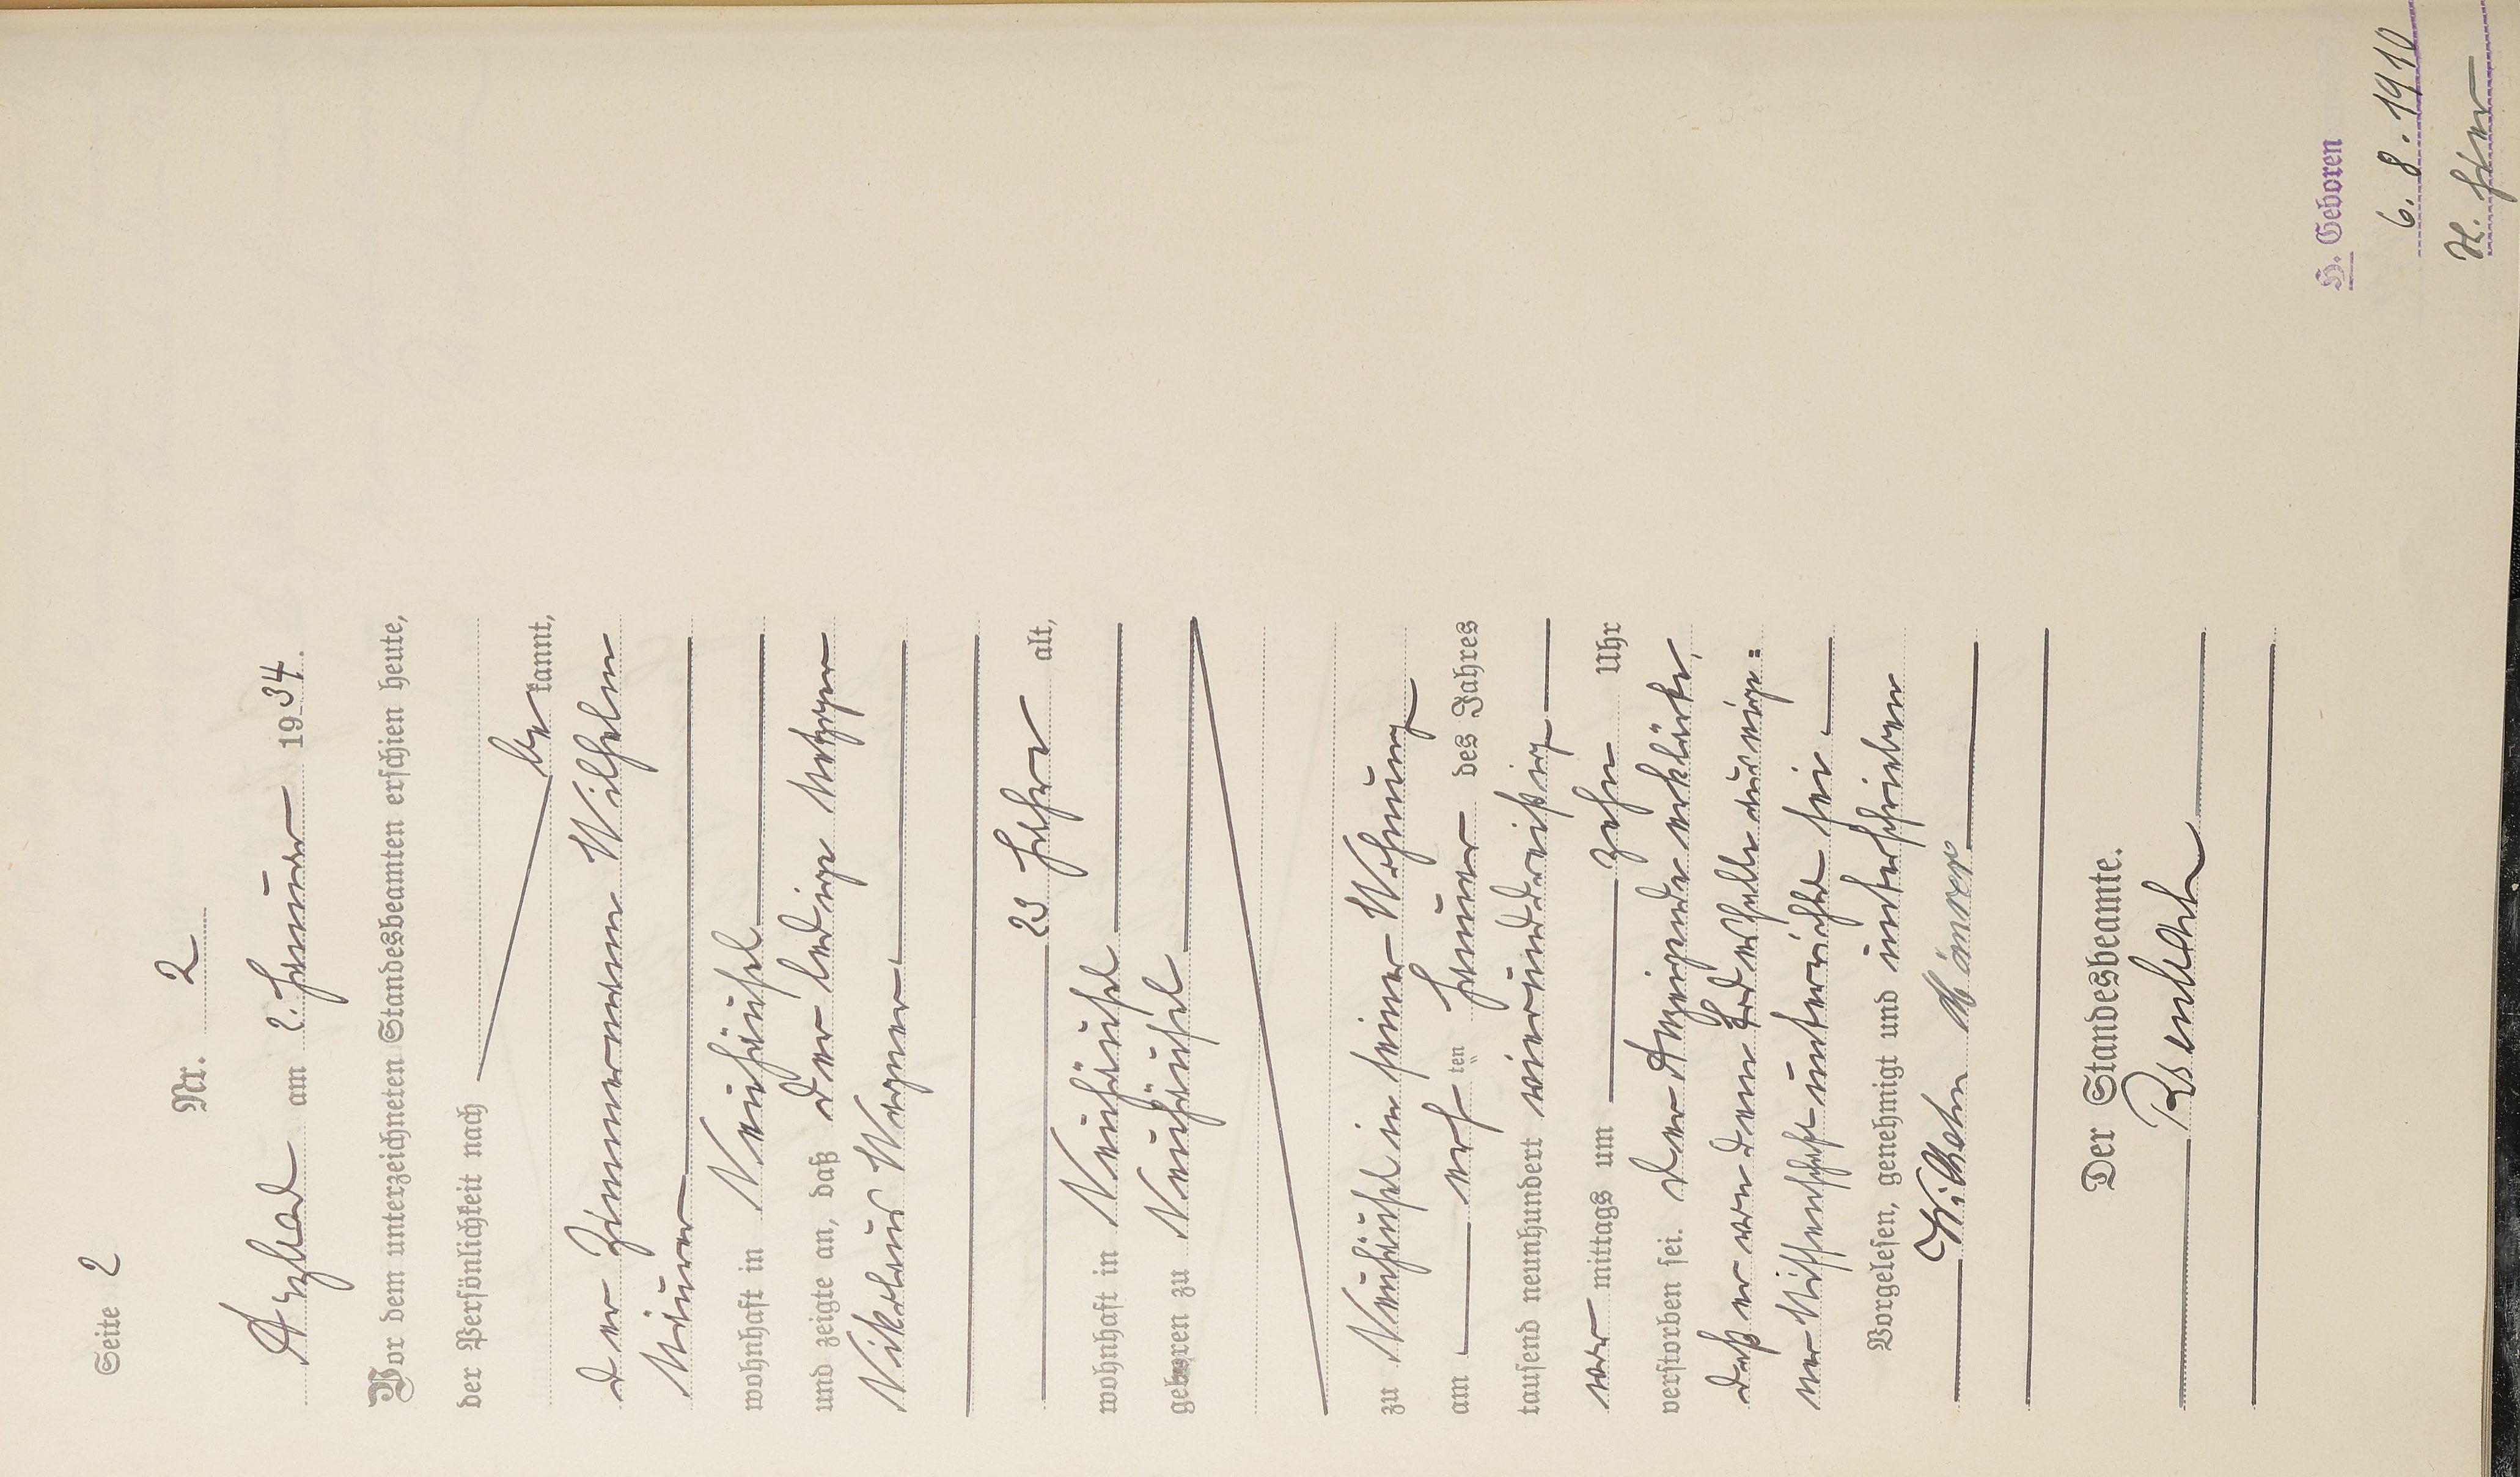 Seite 2
Nr. 2
am 2. Januar 1934.
Vor dem unterzeichneten Standesbeamten erschien heute,
der Persönlichkeit nach
be kannt,
der Zimmermann Wilhelm
wohnhaft in Neuhäusel
und zeigte an, daß der ledige Metzger
Nikolaus Wagner
23 Jahre alt,
wohnhaft in Neuhäusel
geboren zu Neuhäusel
zu Neuhäusel in seiner Wohnung
am ersten Januar des Jahres
tausend neunhundert vierunddreißig
vor mittags um zehn Uhr
verstorben sei. Der Anzeigende erklärte,
daß er von dem Tod aus eige:
ner Wissenschaft unterrichtet sei.
Vorgelesen, genehmigt und unterschrieben
Wilhelm
Der Standesbeamte.
H. Geboren
6. 8. 1910